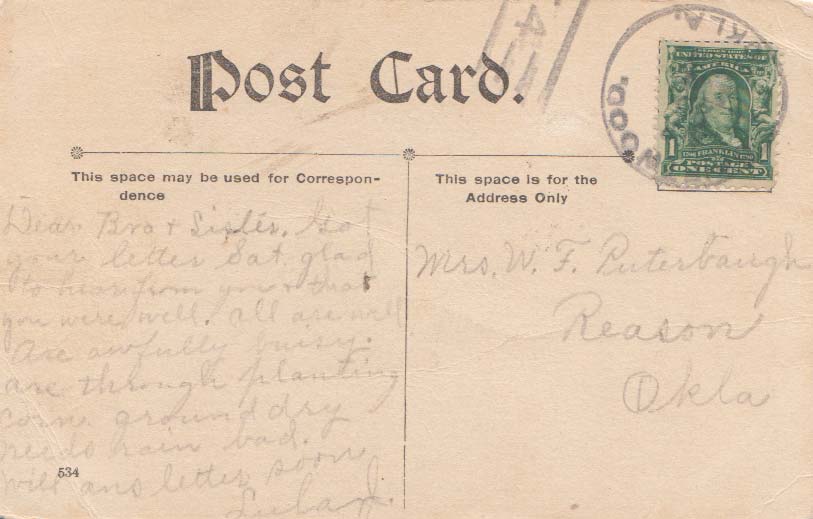 Post Card.
OKLA.
WOOD
SERIES 1902
UNITED STATES OF
AMERICA
1 FRANKLIN 1
POSTAGE
ONE CENT
This space may be used for Correspon-
dence
This space is for the
Address Only
Dear Bro & Sister. Got
your letter Sat. glad
to hear from you & that
you were well. all are well
Are awfully buisy.
are through planting
corn. ground dry
needs rain bad.
Will ans letter soon
534
Mrs. W. F. Puterbaugh
Reason
Okla